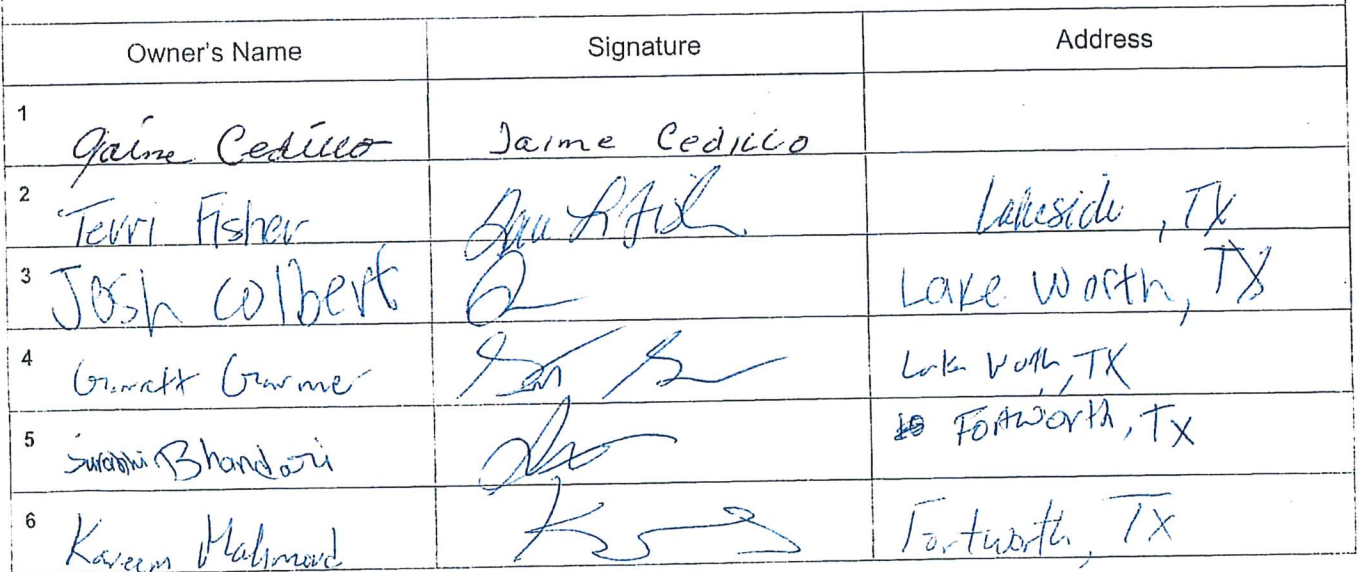 Owner's Name Signature Address
1 Jaime Cedillo Jaime Cedillo
2 Terri Fisher Lakeside, TX
3 Josh Colbert Lake Worth, TX
4 Garrett Garmer Lake Worth, TX
5 Surabhi Bhandari Fortworth, Tx
6 Kareem Mahmoud Fortworth, TX